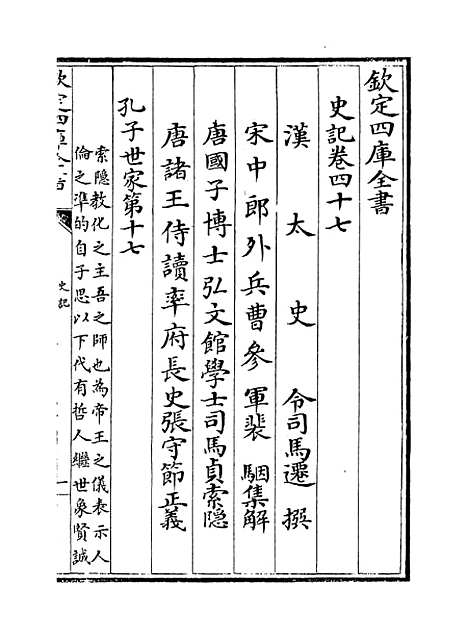 欽定四庫全書
史記卷四十七
漢太史令司馬遷撰
宋中郎外兵曹參軍裴駰集解
唐國子博士弘文館學士司馬貞索隠
唐諸王侍讀率府長史張守節正義
孔子世家第十七
索隠教化之主吾之師也為帝王之儀表示人
倫之準的自子思以下代有哲人繼世象賢誠
欽定四庫全書
史記